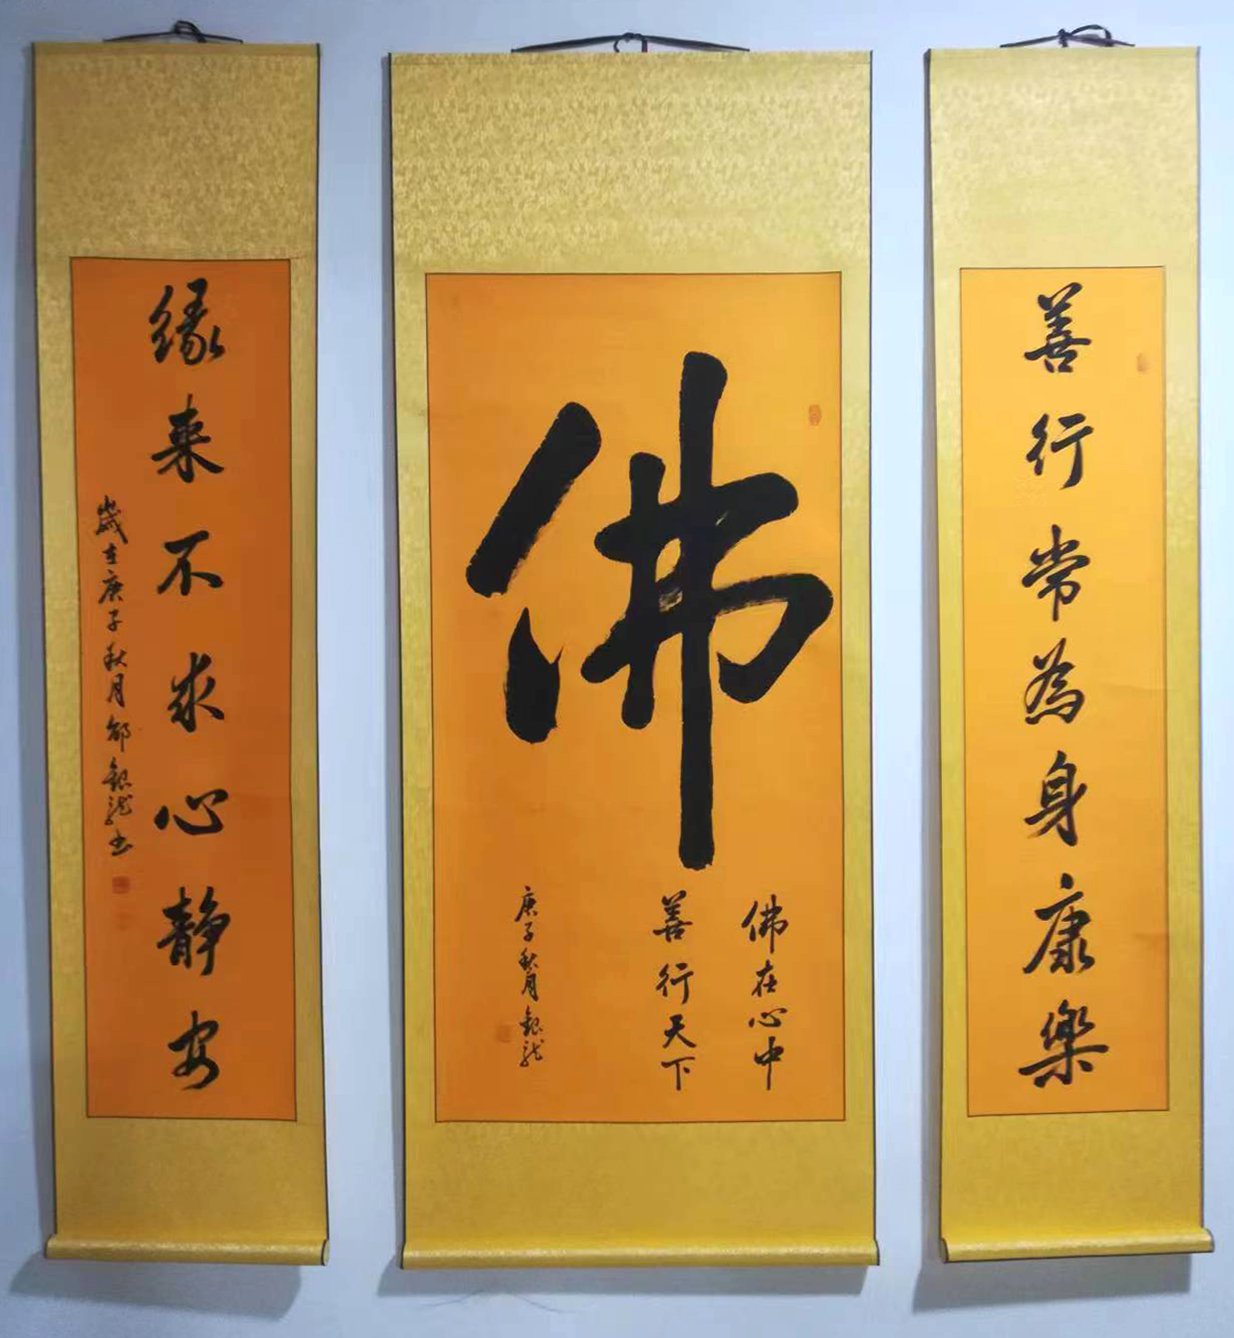 善行常為身康樂
佛
佛在心中
善行天下
庚子秋月銀龍
緣来不求心静安
歲在庚子秋月銀龍书